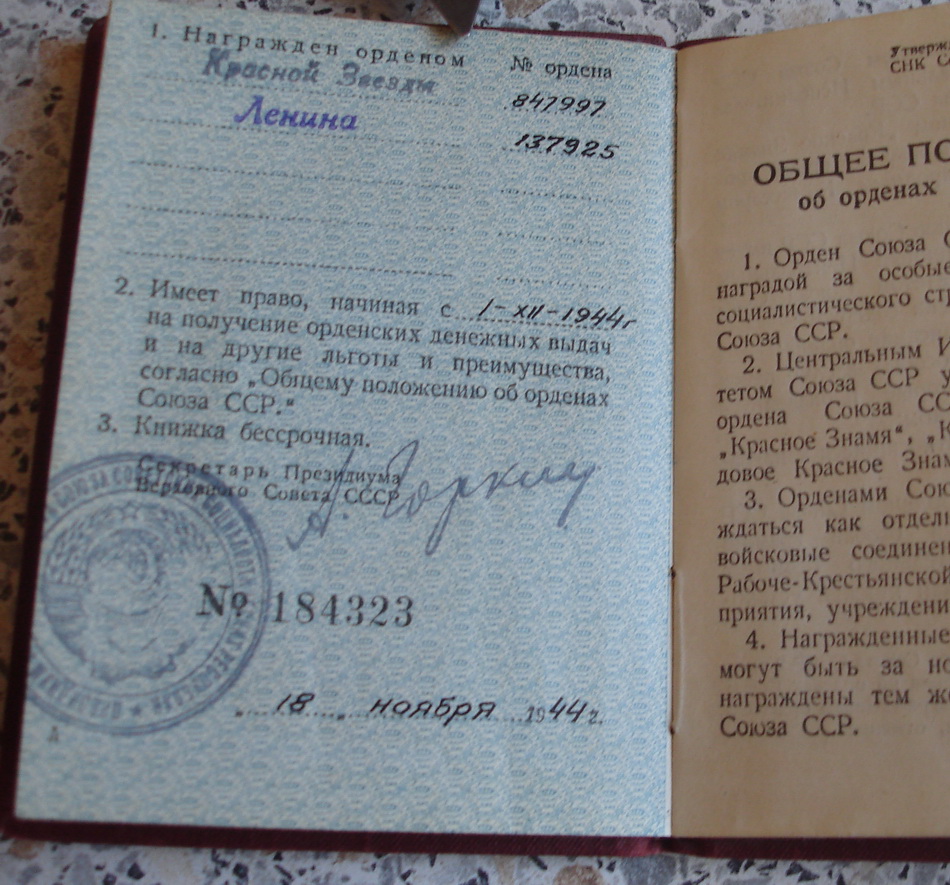 1. Награжден орденом № ордена
Красной Звезды 847997
Ленина 137925
2. Имеет право, начиная с 1-XII-1944г
на получение орденских денежных выдач
и на другие льготы и преимущества,
согласно „Общему положению об орденах
Союза ССР."
3. Книжка бессрочная.
Секретарь Президиума
Верховного Совета СССР
А. Горкин
№ 184323
„ 18 „ ноября 1944 г.
Утверж
СНК С
ОБЩЕЕ ПО
об орденах
1. Орден Союза С
наградой за особые
социалистического стр
Союза ССР.
2. Центральным И
тетом Союза ССР у
ордена Союза СС
„Красное Знамя", „К
довое Красное Знам
3. Орденами Сою
ждаться как отдель
войсковые соединен
Рабоче-Крестьянской
приятия, учреждени
4. Награжденные
могут быть за но
награждены тем же
Союза ССР.